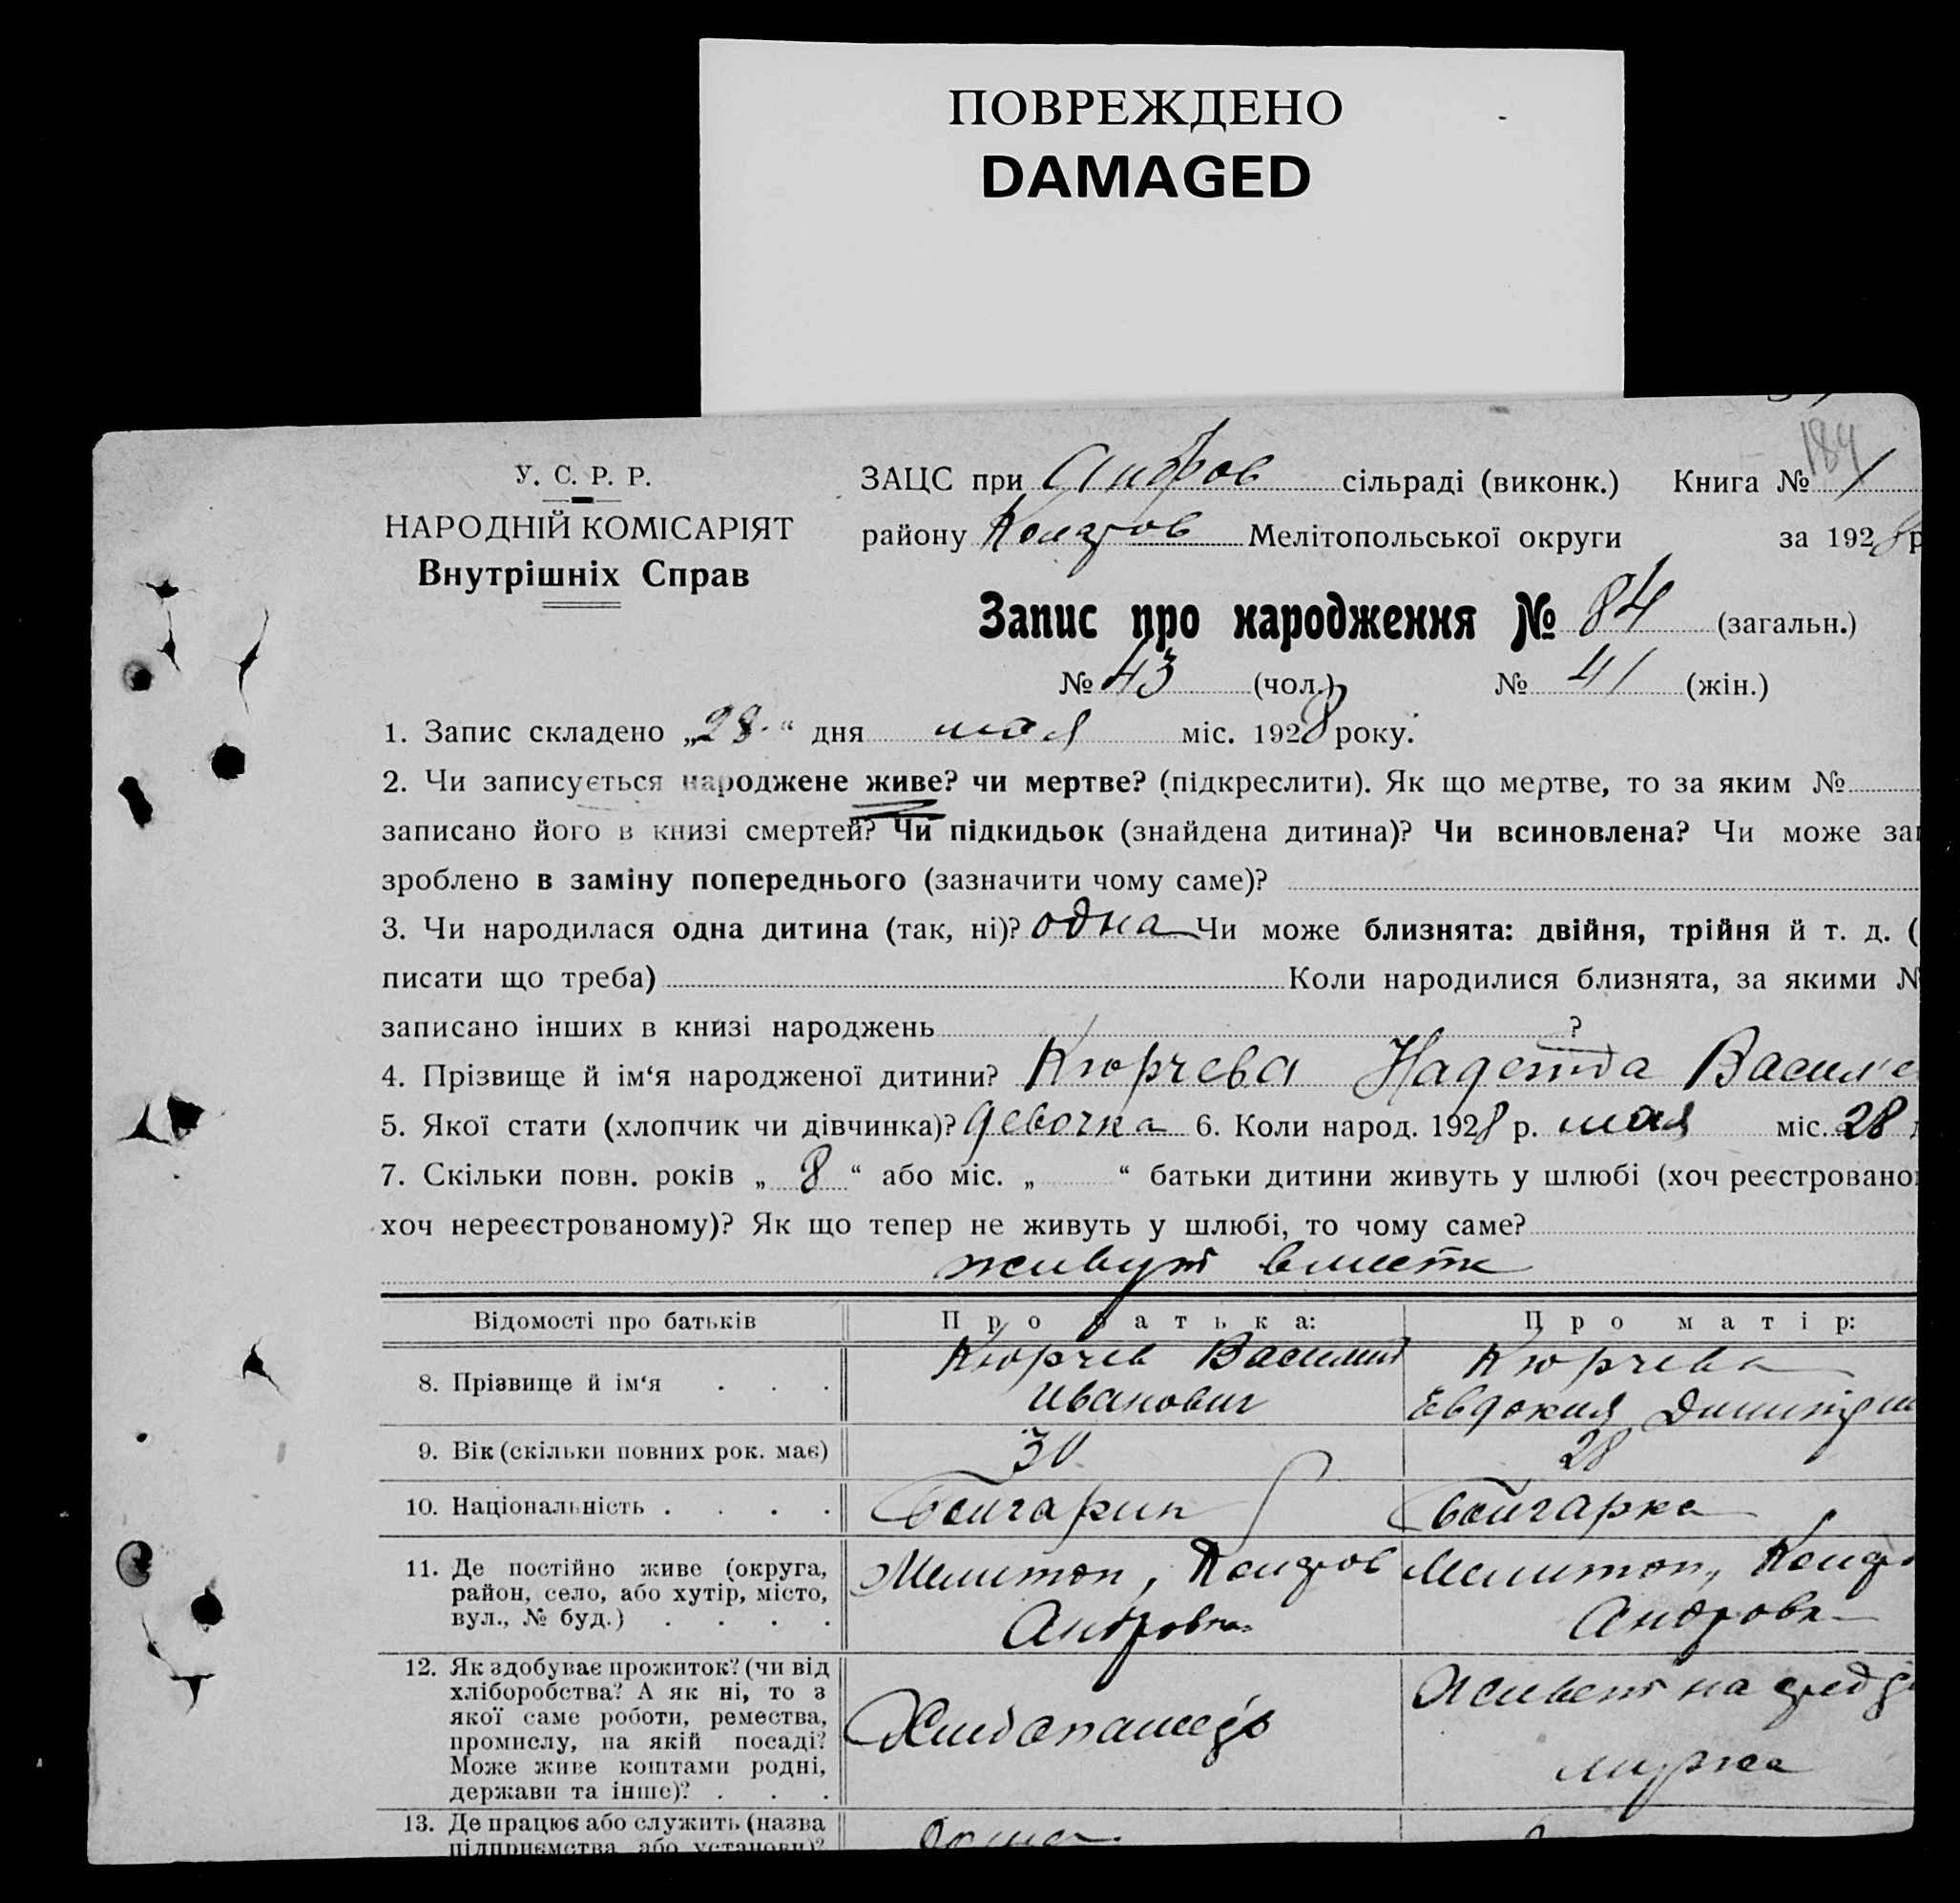 ПОВРЕЖДЕНО
DAMAGED
184
У. С. Р. Р.
НАРОДНІЙ КОМІСАРІЯТ
Внутрішніх Справ
ЗАЦС при Андров сільраді (виконк.) Книга № 1
району Колар Мелітопольської округи за 1928 р
Запис про народження № 84 (загальн.)
№ 43 (чол.) № 41 (жін.)
1. Запис складено „28" дня мая міс. 1928 року.
2. Чи записується народжене живе? чи мертве? (підкреслити). Як що мертве, то за яким №
записано його в книзі смертей? Чи підкидьок (знайдена дитина)? Чи всиновлена? Чи може за
зроблено в заміну попереднього (зазначити чому саме)?
3. Чи народилася одна дитина (так, ні)? одна Чи може близнята: двійня, трійня й т. д. (
писати що треба) Коли народилися близнята, за якими №
записано інших в книзі народжень ?
4. Прізвище й ім'я народженої дитини? Кюрчева Надежда Васил'е
5. Якої стати (хлопчик чи дівчинка)? девочка 6. Коли народ. 1928 р. мая міс. 28
7. Скільки повн. років „ 8 " або міс. „ " батьки дитини живуть у шлюбі (хоч реєстровано
хоч нереєстрованому)? Як що тепер не живуть у шлюбі, то чому саме?
живут вместе
Відомості про батьків Про батька: Про матір:
8. Прізвище й ім'я Кюрчев Василий Иванович Кюрчева Евдокия Димитри
9. Вік (скільки повних рок. має) 30 28
10. Національність Болгарин Болгарка
11. Де постійно живе (округа,
район, село, або хутір, місто,
вул., № буд.)
Мелитоп, Андровка
Мелитоп, Андровк
12. Як здобуває прожиток? (чи від
хліборобства? А як ні, то з
якої саме роботи, ремества,
промислу, на якій посаді?
Може живе коштами родні,
держави та інше)?
Хлебопашец
Живет на сред
мужа
13. Де працює або служить (назва
підприємства або установи)?